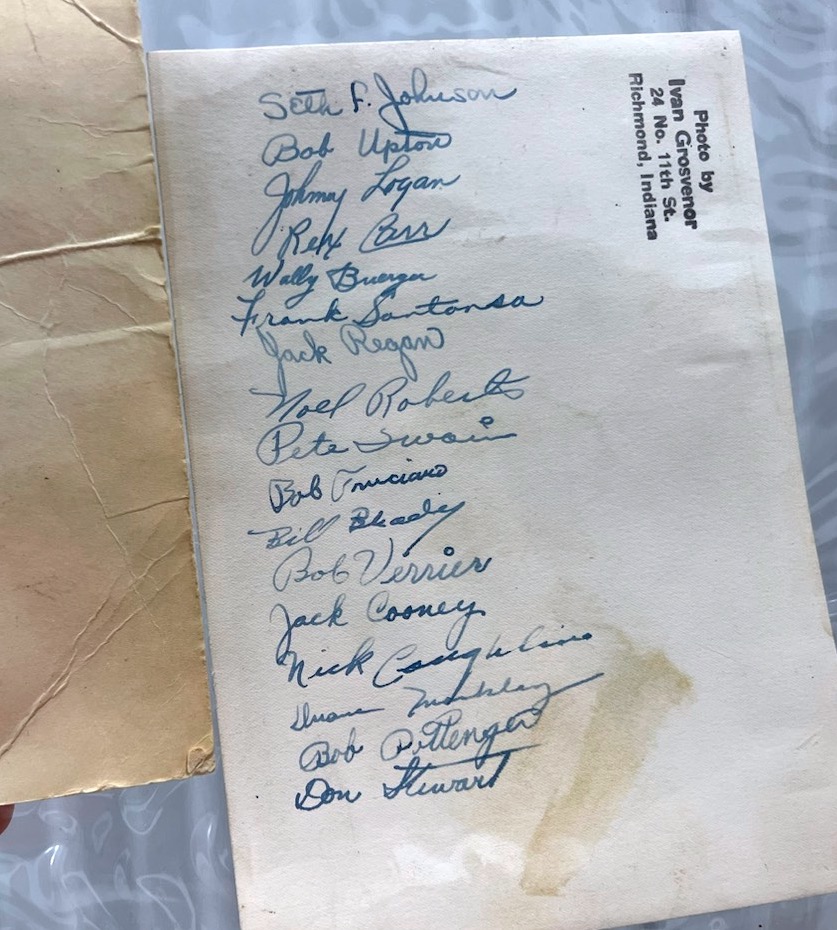 Seth F. Johnson
Bob Upton
Johnny Logan
Rex Carr
Wally Buerger
Frank Santonsa
Jack Regan
Noel Roberts
Pete Swain
Bob
Bill Brady
Bob Verrier
Jack Cooney
Nick Coughlin
Duane Markley
Bob Pittenger
Don Stewart
Photo by
Ivan Grosvenor
24 No. 11th St.
Richmond, Indiana